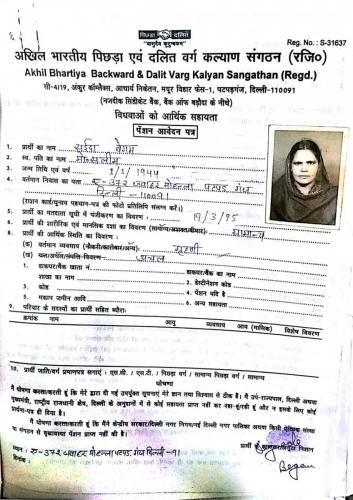 पिछड़ा दलित
"वसुधैव कुटुम्बकम्"
Reg. No. : S-31637
अखिल भारतीय पिछड़ा एवं दलित वर्ग कल्याण संगठन (रजि०)
Akhil Bhartiya Backward & Dalit Varg Kalyan Sangathan (Regd.)
सी-4/19, अंकुर कॉम्प्लैक्स, आचार्य निकेतन, मयूर विहार फेस-1, पटपड़गंज, दिल्ली-110091
(नजदीक सिंडीकेट बैंक, बैंक ऑफ बड़ौदा के नीचे)
विधवाओं को आर्थिक सहायता
पेंशन आवेदन पत्र
1. प्रार्थी का नाम बेगम
2. स्व. पति का नाम मो० सलीम
3. जन्म तिथि एवं वर्ष 1/1/1944
4. वर्तमान निवास का पता ए-372 जवाहर मोहल्ला पटपड़ गंज
दिल्ली-110091
(राशन कार्ड/चुनाव पहचान-पत्र की फोटो प्रतिलिपि संलग्न करें।)
5. प्रार्थी का मतदाता सूची में पंजीकरण का विवरण: 19/3/95
6. प्रार्थी की शारीरिक एवं मानसिक दशा का विवरण सामान्य
8. प्रार्थी की आर्थिक स्थिति का विवरण :
(क) वर्तमान व्यवसाय (नौकरी/कारोबार/अन्य) गृहणी
(ख) चल/अचल/संपत्ति-विवरण अचल
1. डाकघर/बैंक खाता नं
डाकघर/बैंक का नाम
शाखा का नाम
2. डेस्टीनेशन कोड
3. कोड
4. पेंशन यदि है
5. मकान जमीन आदि
6. अन्य सहायता
9. परिवार के सदस्यों का प्रार्थी सहित ब्यौरा:
क्रमांक नाम आयु व्यवसाय आय (मासिक) विशेष विवरण
10. प्रार्थी जाति/वर्ग प्रमाणपत्र लगाएं : एस.सी. / एस.टी. / पिछड़ा वर्ग / सामान्य पिछड़ा वर्ग / सामान्य
घोषणा
मैं घोषणा करता/करती हूं कि मेरे द्वारा दी गई उपर्युक्त सूचनाएं मेरे ज्ञान तथा विश्वास से ठीक हैं। मैं उप-राज्यपाल, दिल्ली अथवा
मुख्यमंत्री, राष्ट्रीय राजधानी क्षेत्र, दिल्ली के अनुदानों में से कोई सहायता प्राप्त नहीं कर रहा-चुका हूं और न इसके लिए कोई
प्रार्थना-पत्र ही दिया है।
मैं घोषणा करता/करती हूं कि मैंने केन्द्रीय सरकार/दिल्ली नगर निगम/नई दिल्ली नगर पालिका अथवा किसी वैधिक संस्था
या संगठन से वृद्धावस्था पेंशन प्राप्त नहीं की है।
स्थान : ए-372 जवाहर मोहल्ला पटपड़ गंज दिल्ली-91
दिनांक
प्रार्थी के हस्ताक्षर निशान
Begam